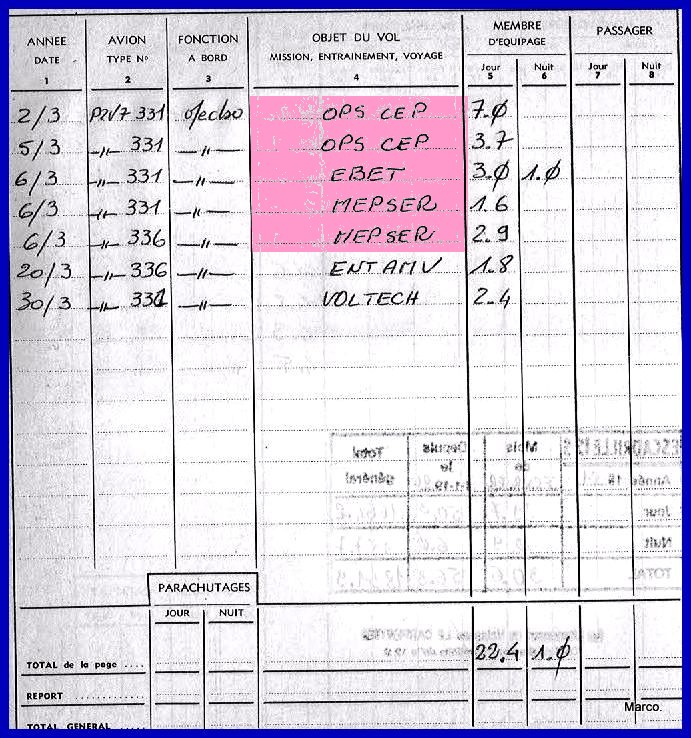 ANNEE AVION FONCTION OBJET DU VOL MEMBRE PASSAGER
DATE TYPE N° A BORD MISSION, ENTRAINEMENT, VOYAGE D'EQUIPAGE
Jour Nuit Jour Nuit
1 2 3 4 5 6 7 8
2/3 P2V7 331 OPS CEP 7.0
5/3 -"- 331 -"- OPS CEP 3.7
6/3 -"- 331 -"- EBET 3.0 1.0
6/3 -"- 331 -"- MEPSER 1.6
6/3 -"- 336 -"- MEPSER 2.9
20/3 -"- 336 -"- ENT AMV 1.8
30/3 -"- 331 -"- VOLTECH 2.4
ESCADRILLE
Total Depuis le Mois de
général 1-1-19 Année 19
Jour
Nuit
TOTAL
PARACHUTAGES
JOUR NUIT
TOTAL de la page .... 22.4 1.0
REPORT
Marco.
TOTAL GENERAL